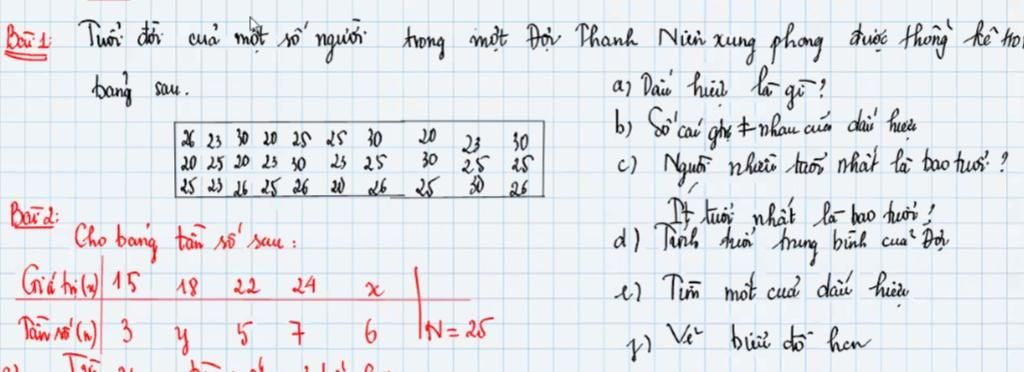 Bài 1: Tuổi đời của một số người trong một Đội Thanh Niên xung phong được thống kê tro
bảng sau.
26 23 30 20 25 25 30 20 23 30
20 25 20 23 30 23 25 30 25 25
25 23 26 25 26 20 26 25 30 26
a) Dấu hiệu là gì?
b) Số các ghi ≠ nhau của dấu hiệu
c) Người nhiều tuổi nhất là bao tuổi?
Ít tuổi nhất là bao tuổi?
d) Tính tuổi trung bình của Đội
e) Tìm mốt của dấu hiệu
f) Vẽ biểu đồ
Bài 2:
Cho bảng tần số sau:
Giá trị (x) 15 18 22 24 x
Tần số (n) 3 y 5 7 6 N = 25